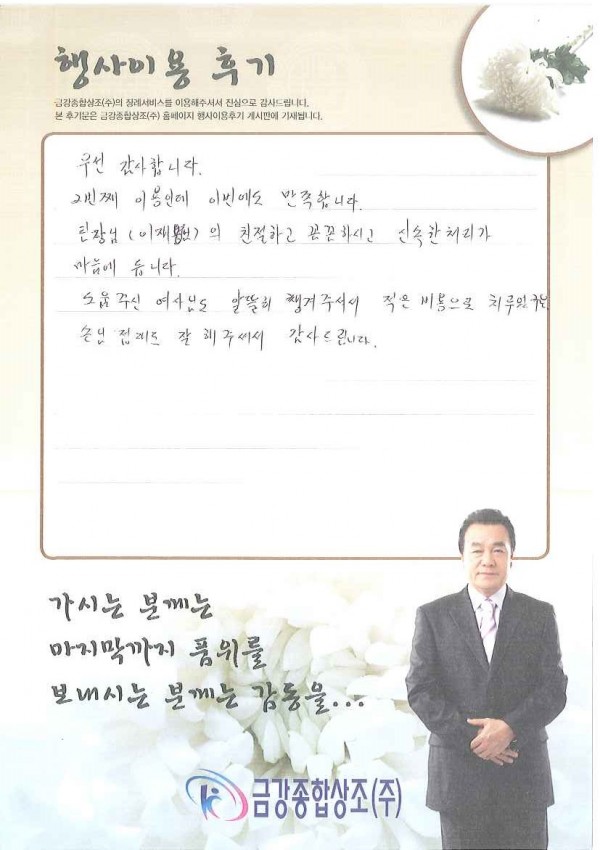 행사이용 후기
금강종합상조(주)의 장례서비스를 이용해주셔서 진심으로 감사드립니다.
본 후기문은 금강종합상조(주) 홈페이지 행사이용후기 게시판에 기재됩니다.
우선 감사합니다.
2번째 이용인데 이번에도 만족합니다.
팀장님 (이재) 의 친절하고 꼼꼼하시고 신속한처리가
마음에 듭니다.
도움주신 여사님도 알뜰히 챙겨주셔서 적은 비용으로
손님 접대도 잘 해주셔서 감사드립니다.
가시는 분께는
마지막까지 품위를
보내시는 분께는 감동을...
금강종합상조(주)